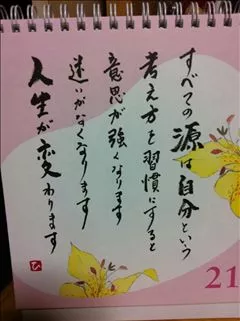 すべての源は自分という
考え方を習慣にすると
意思が強くなります
迷いがなくなります
人生が変わります
ひ
21